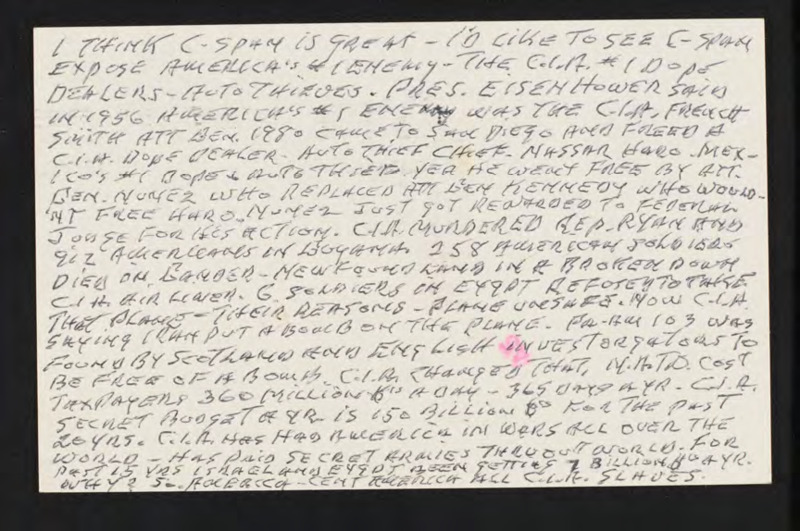 I THINK C-SPAN IS GREAT - I'D LIKE TO SEE C-SPAN
EXPOSE AMERICA'S #1 ENEMY - THE C.I.A. #1 DOPE
DEALERS - AUTO THIEVES. PRES. EISENHOWER SAID
IN 1956 AMERICA'S #1 ENEMY WAS THE C.I.A. FRENCH
SMITH ATT GEN. 1980 CAME TO SAN DIEGO AND FREED A
C.I.A. DOPE DEALER - AUTO THIEF CHIEF. NASSAR HARO. MEX-
ICO'S #1 DOPE & AUTO THIEF. YEA HE WENT FREE BY ATT.
GEN. NUNEZ WHO REPLACED ATT GEN KENNEDY WHO WOULD-
NT FREE HARO. NUNEZ JUST GOT REWARDED TO FEDERAL
JUDGE FOR HIS ACTION. C.I.A. MURDERED REP. RYAN AND
912 AMERICANS IN GUYANA. 258 AMERICAN SOLDIERS
DIED ON GANDER - NEWFOUNDLAND IN A BROKEN DOWN
C.I.A. AIR LINER. 6 SOLDIERS IN EYGPT REFUSED TO TAKE
THAT PLANE - THEIR REASONS - PLANE UNSAFE. NOW C.I.A.
SAYING IRAN PUT A BOMB ON THE PLANE. PA-AM 103 WAS
FOUND BY SCOTLAND AND ENGLISH INVESTORGATORS TO
BE FREE OF A BOMB. C.I.A. CHANGED THAT, N.A.T.O. COST
TAXPAYERS 360 MILLION A DAY - 365 DAYS A YR - C.I.A.
SECRET BUDGET A YR IS 150 BILLION FOR THE PAST
20 YRS. C.I.A. HAS HAD AMERICA IN WARS ALL OVER THE
WORLD - HAS PAID SECRET ARMIES THRUOUT WORLD. FOR
PAST 15 YRS ISRAEL AND EYGPT BEEN GETTING 7 BILLION A YR.
WHY? SO. AMERICA - CENT AMERICA ALL C.I.A. SLAVES.